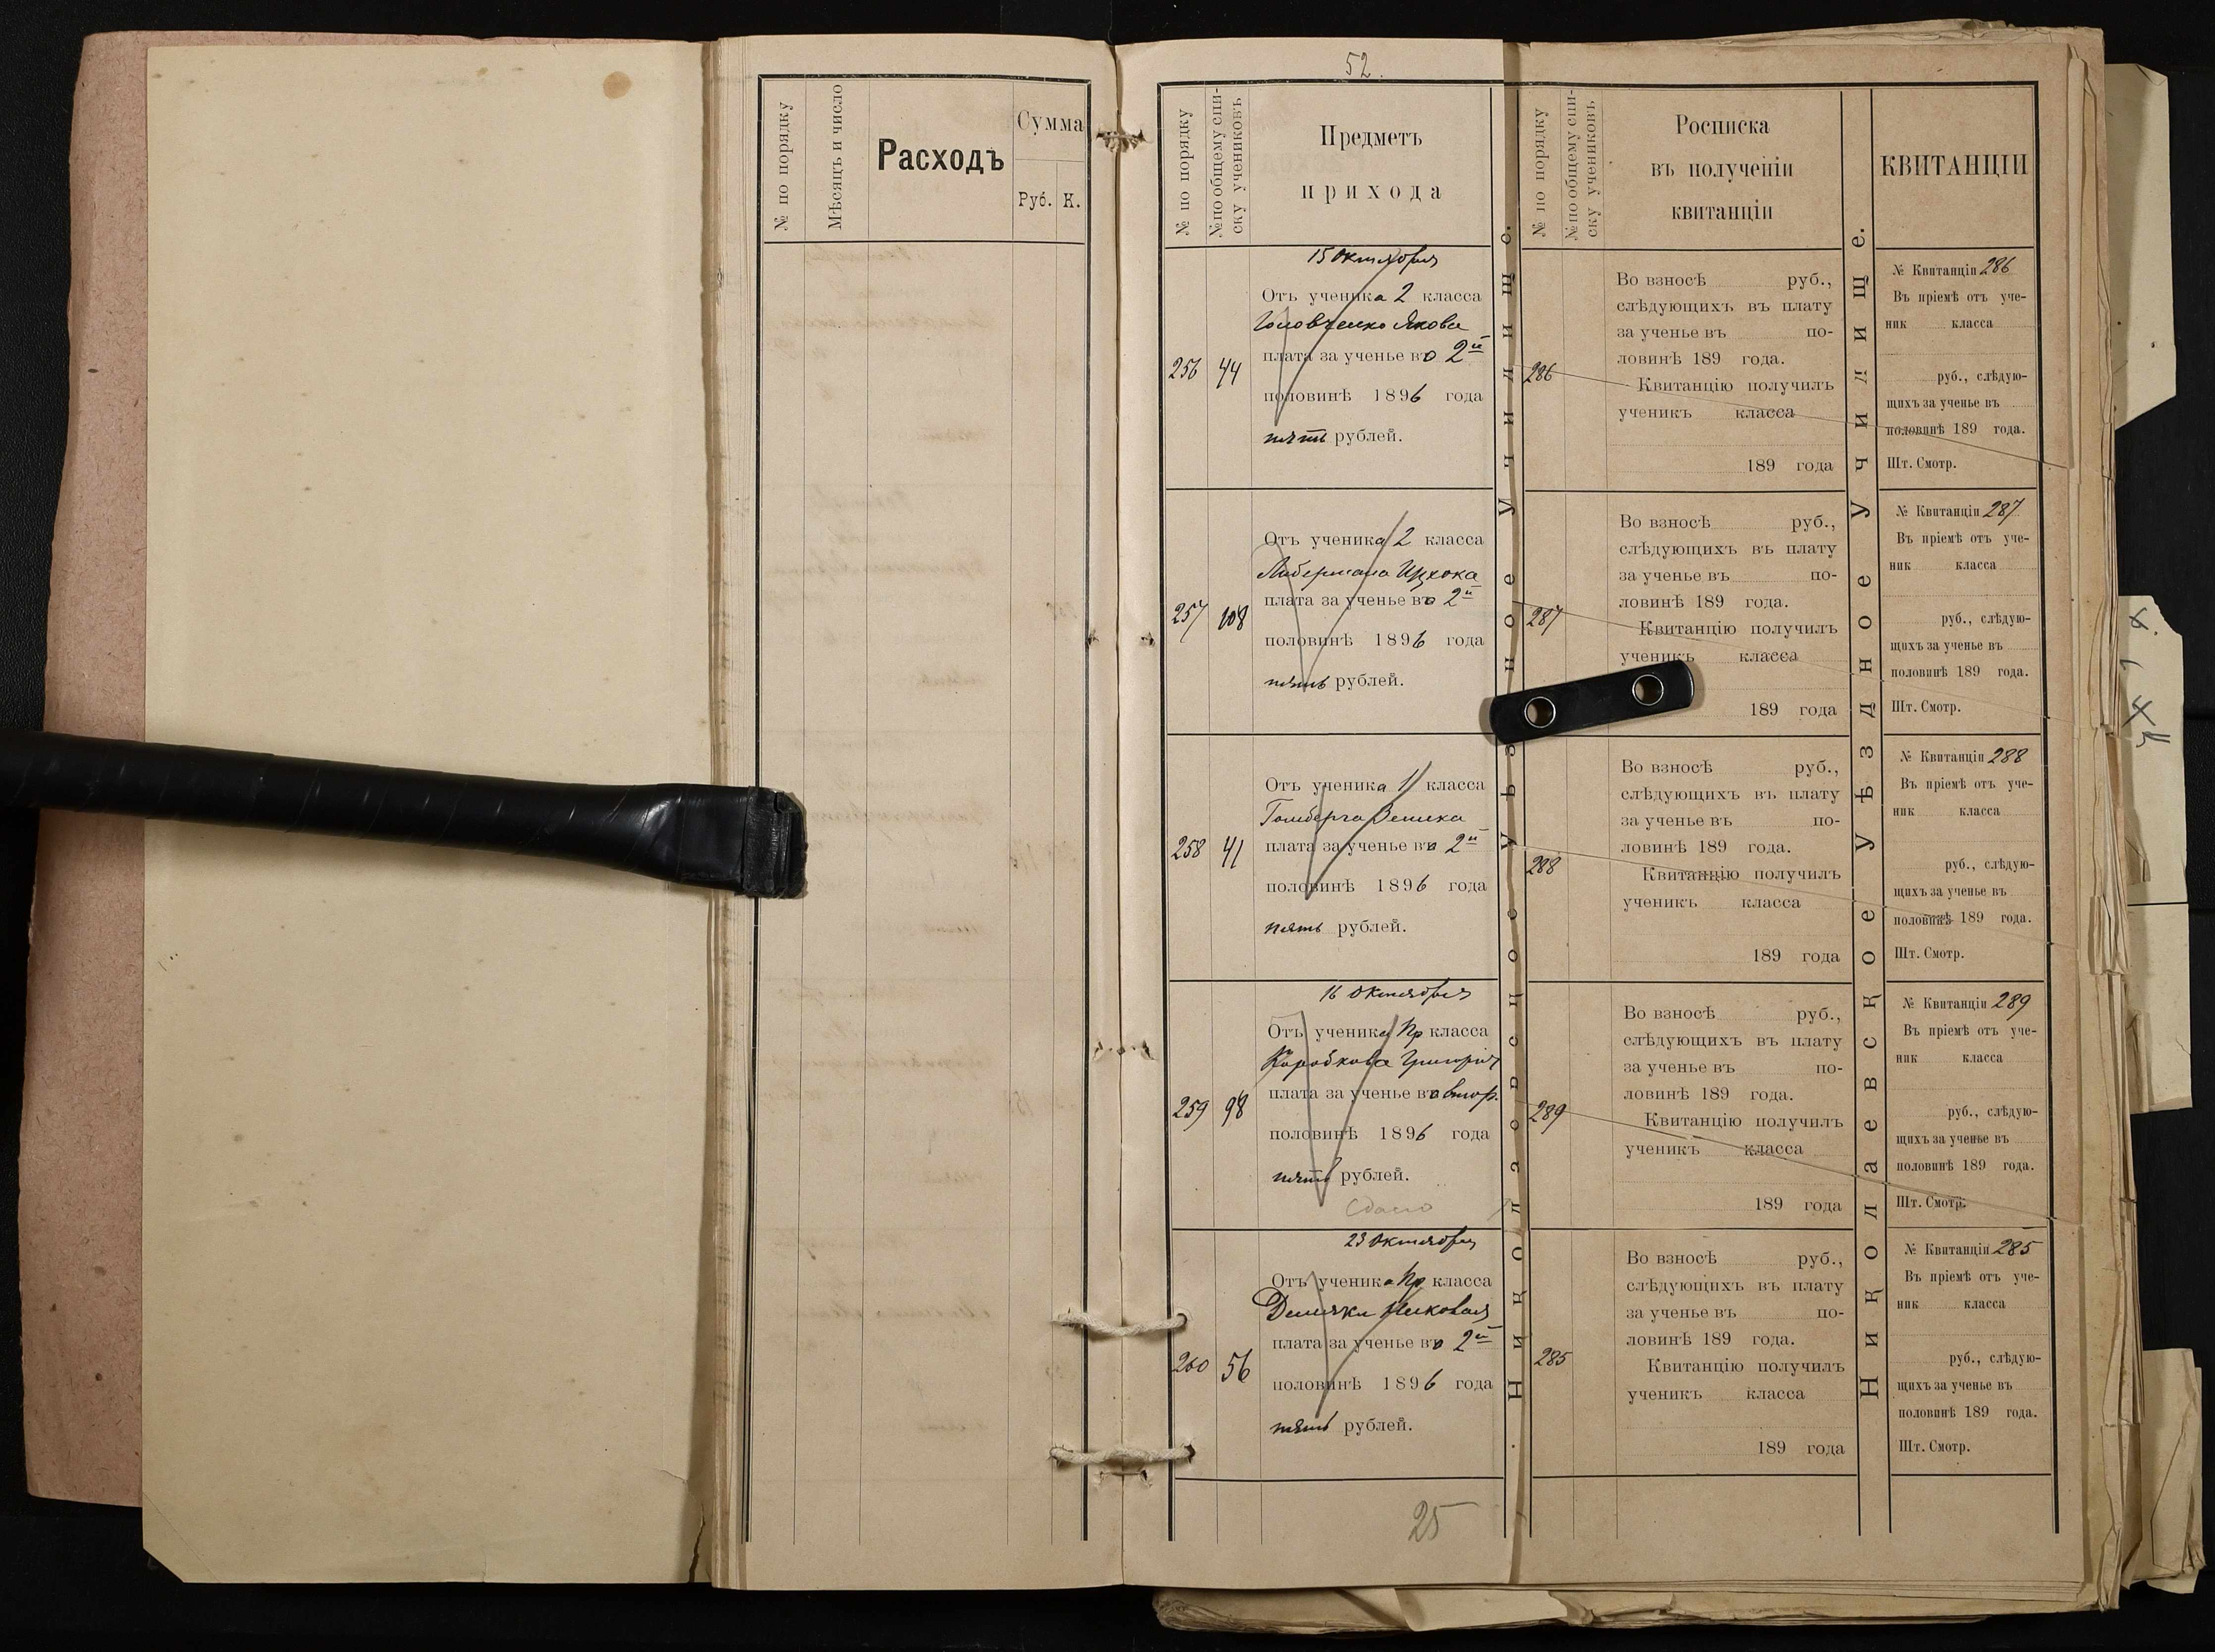 № по порядку
Мѣсяцъ и число
Расходъ
Сумма
Руб. К.
52.
№ по порядку
№ по общему спи-
ску учениковъ
Предметъ
прихода
15 Октября
256 44
Отъ ученика 2 класса
Головченко Якова
плата за ученье во 2й
половинѣ 1896 года
пять рублей.
257 108
Отъ ученика 2 класса
Либермана Ицхока
плата за ученье во 2й
половинѣ 1896 года
пять рублей.
258 41
Отъ ученика 1 класса
Гомберга
плата за ученье во 2й
половинѣ 1896 года
пять рублей.
16 Октября
259 98
Отъ ученика Пр класса
Коробкова Григорія
плата за ученье во втор.
половинѣ 1896 года
пять рублей.
Сдано
23 Октября
260 56
Отъ ученика Пр класса
Николая
плата за ученье во 2й
половинѣ 1896 года
пять рублей.
25
Николаевское Уѣздное Училище.
№ по порядку
№ по общему спи-
ску учениковъ
Росписка
въ полученіи
квитанціи
286
Во взносѣ руб.,
слѣдующихъ въ плату
за ученье въ по-
ловинѣ 189 года.
Квитанцію получилъ
ученикъ класса
189 года
287
Во взносѣ руб.,
слѣдующихъ въ плату
за ученье въ по-
ловинѣ 189 года.
Квитанцію получилъ
ученикъ класса
189 года
288
Во взносѣ руб.,
слѣдующихъ въ плату
за ученье въ по-
ловинѣ 189 года.
Квитанцію получилъ
ученикъ класса
189 года
289
Во взносѣ руб.,
слѣдующихъ въ плату
за ученье въ по-
ловинѣ 189 года.
Квитанцію получилъ
ученикъ класса
189 года
285
Во взносѣ руб.,
слѣдующихъ въ плату
за ученье въ по-
ловинѣ 189 года.
Квитанцію получилъ
ученикъ класса
189 года
Николаевское Уѣздное Училище.
КВИТАНЦІИ
№ Квитанціи 286
Въ пріемѣ отъ уче-
ник класса
руб., слѣдую-
щихъ за ученье въ
половинѣ 189 года.
Шт. Смотр.
№ Квитанціи 287
Въ пріемѣ отъ уче-
ник класса
руб., слѣдую-
щихъ за ученье въ
половинѣ 189 года.
Шт. Смотр.
№ Квитанціи 288
Въ пріемѣ отъ уче-
ник класса
руб., слѣдую-
щихъ за ученье въ
половинѣ 189 года.
Шт. Смотр.
№ Квитанціи 289
Въ пріемѣ отъ уче-
ник класса
руб., слѣдую-
щихъ за ученье въ
половинѣ 189 года.
Шт. Смотр.
№ Квитанціи 285
Въ пріемѣ отъ уче-
ник класса
руб., слѣдую-
щихъ за ученье въ
половинѣ 189 года.
Шт. Смотр.